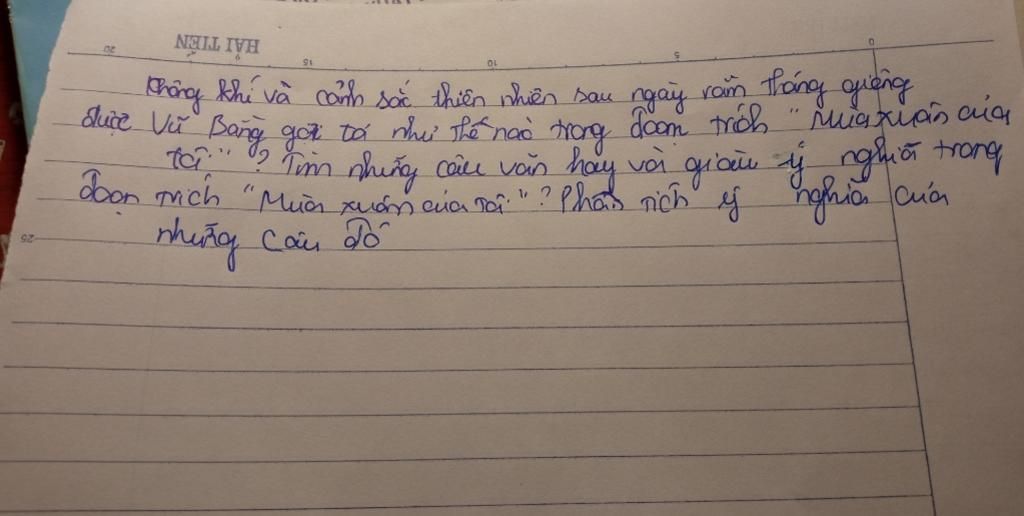 HẢI TIẾN
20 15 10 5 0
Không khí và cảnh sắc thiên nhiên sau ngày rằm tháng giêng
được Vũ Bằng gợi tả như thế nào trong đoạn trích "Mùa xuân của
tôi" ? Tìm những câu văn hay và giàu ý nghĩa trong
đoạn trích "Mùa xuân của tôi" ? Phân tích ý nghĩa của
25
những câu đó